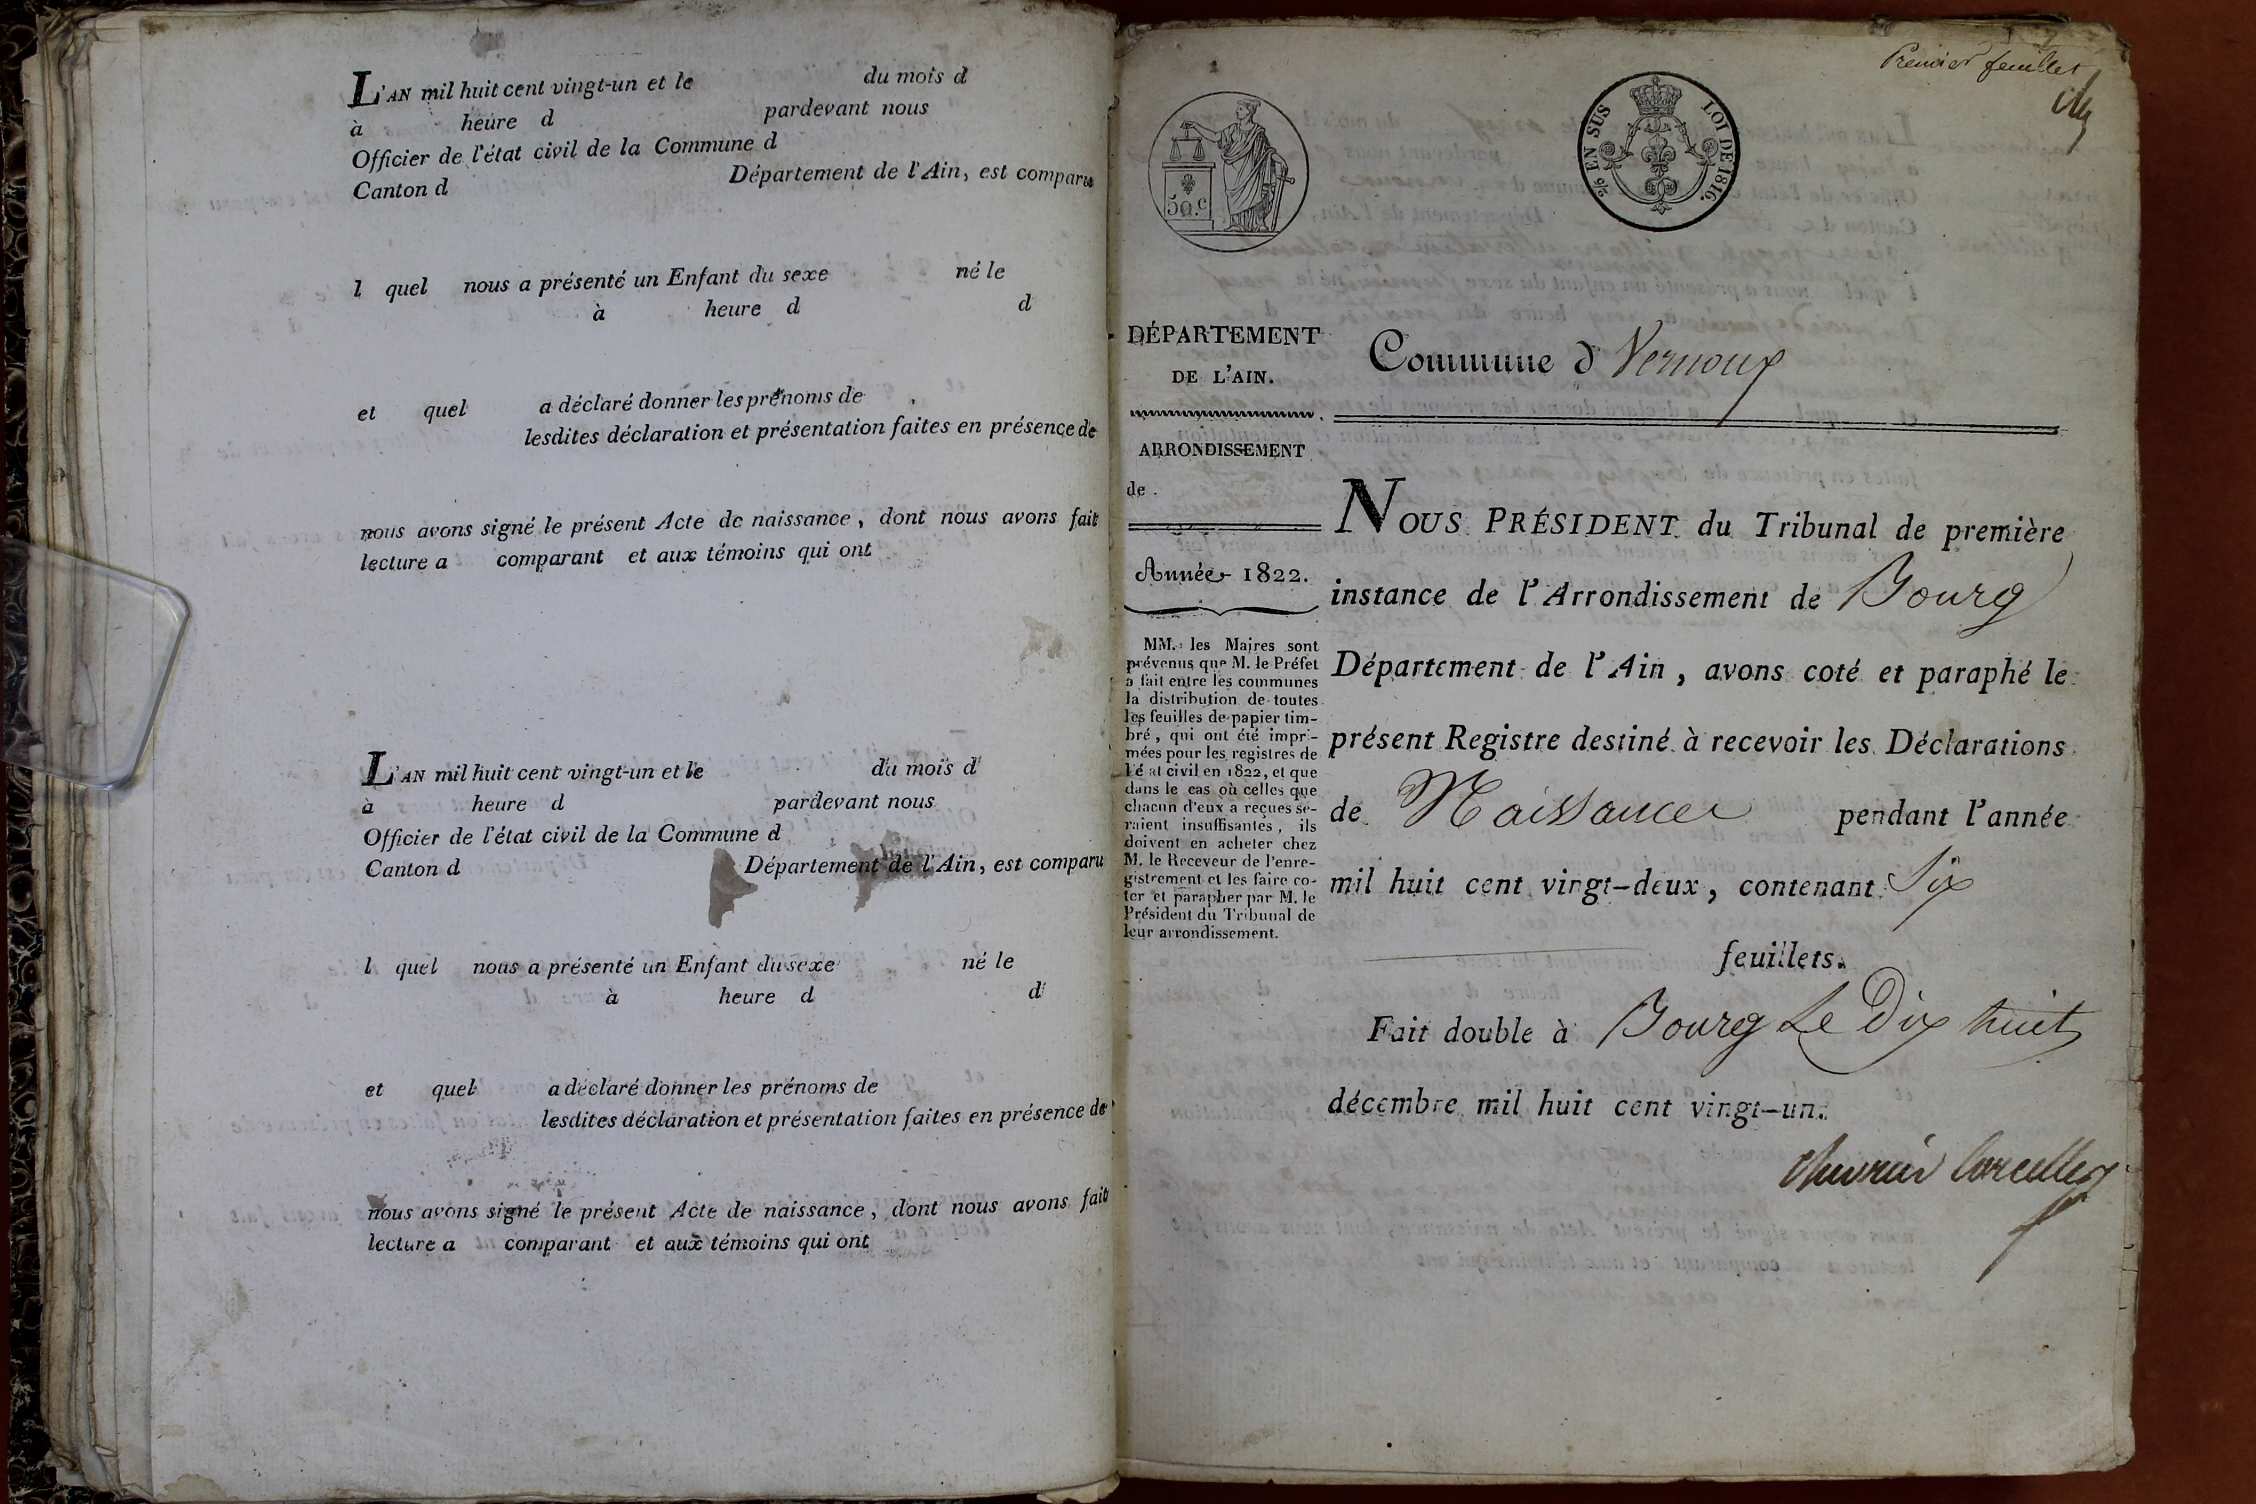 L'AN mil huit cent vingt-un et le du mois d
à heure d pardevant nous
Officier de l'état civil de la Commune d
Canton d Département de l'Ain, est comparu
l quel nous a présenté un Enfant du sexe né le
à heure d d
et quel a déclaré donner les prénoms de
lesdites déclaration et présentation faites en présence de
nous avons signé le présent Acte de naissance, dont nous avons fait
lecture a comparant et aux témoins qui ont
L'AN mil huit cent vingt-un et le du mois d
à heure d pardevant nous
Officier de l'état civil de la Commune d
Canton d Département de l'Ain, est comparu
l quel nous a présenté un Enfant du sexe né le
à heure d d
et quel a déclaré donner les prénoms de
lesdites déclaration et présentation faites en présence de
nous avons signé le présent Acte de naissance, dont nous avons fait
lecture a comparant et aux témoins qui ont
Premier feuillet
50.c
EN SUS LOI DE 1816.
DÉPARTEMENT
DE L'AIN.
ARRONDISSEMENT
de
Année 1822.
MM. les Maires sont
prévenus que M. le Préfet
a fait entre les communes
la distribution de toutes
les feuilles de papier tim-
bré, qui ont été impri-
mées pour les registres de
l'état civil en 1822, et que
dans le cas où celles que
chacun d'eux a reçues se-
raient insuffisantes, ils
doivent en acheter chez
M. le Receveur de l'enre-
gistrement et les faire co-
ter et parapher par M. le
Président du Tribunal de
leur arrondissement.
Commune d Vernoux
NOUS PRÉSIDENT du Tribunal de première
instance de l'Arrondissement de Bourg
Département de l'Ain, avons coté et paraphé le
présent Registre destiné à recevoir les Déclarations
de Naissances pendant l'année
mil huit cent vingt-deux, contenant Six
feuillets.
Fait double à Bourg Le Dix huit
décembre mil huit cent vingt-un.